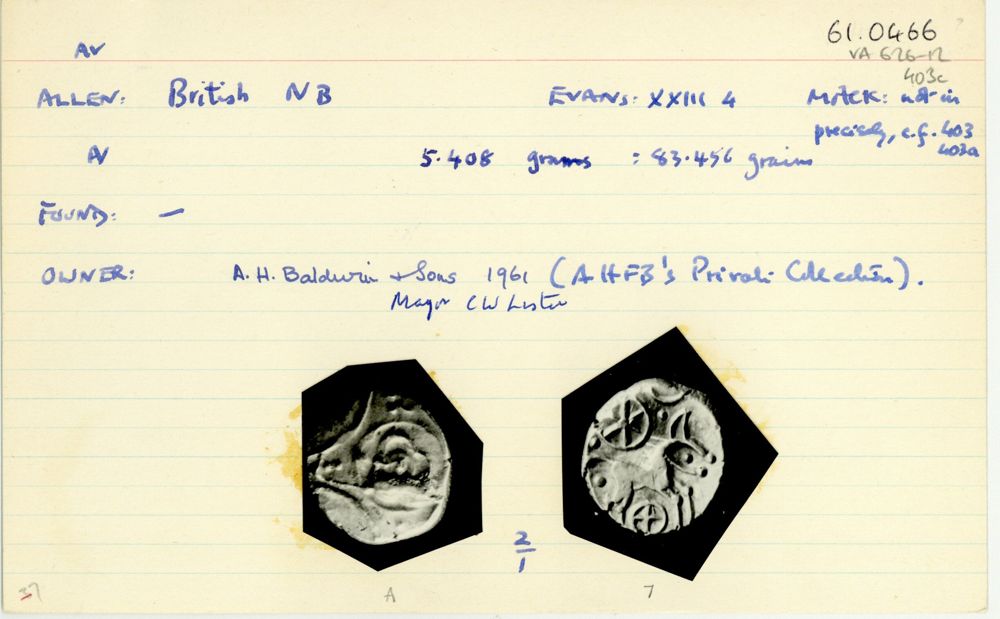 61.0466
AV
VA 626-12
403c
ALLEN: British NB EVANS: XXIII 4 MACK: not in
precisely, c.f. 403
403a
AV 5.408 grams = 83.456 grains
FOUND: —
OWNER: A.H. Baldwin & Sons 1961 (AHFB's Private Collection).
Mayor CW Lister
2
1
37 A 7